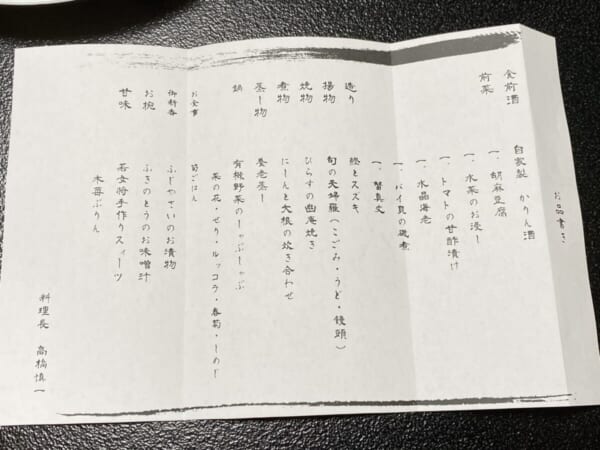 お品書き
食前酒 自家製 かりん酒
前菜 一、胡麻豆腐
一、水菜のお浸し
一、トマトの甘酢漬け
一、水晶海老
一、バイ貝の磯煮
一、蟹真丈
造り 鰹とスズキ
揚物 旬の天婦羅(こごみ・うど・饅頭)
焼物 ひらすの幽庵焼き
煮物 にしんと大根の炊き合わせ
蒸し物 養老蒸し
鍋 有機野菜のしゃぶしゃぶ
菜の花・せり・ルッコラ・春菊・しめじ
お食事 筍ごはん
御新香 ふじやさいのお漬物
お椀 ふきのとうのお味噌汁
甘味 若女将手作りスィーツ
木苺ぷりん
料理長 高橋慎一